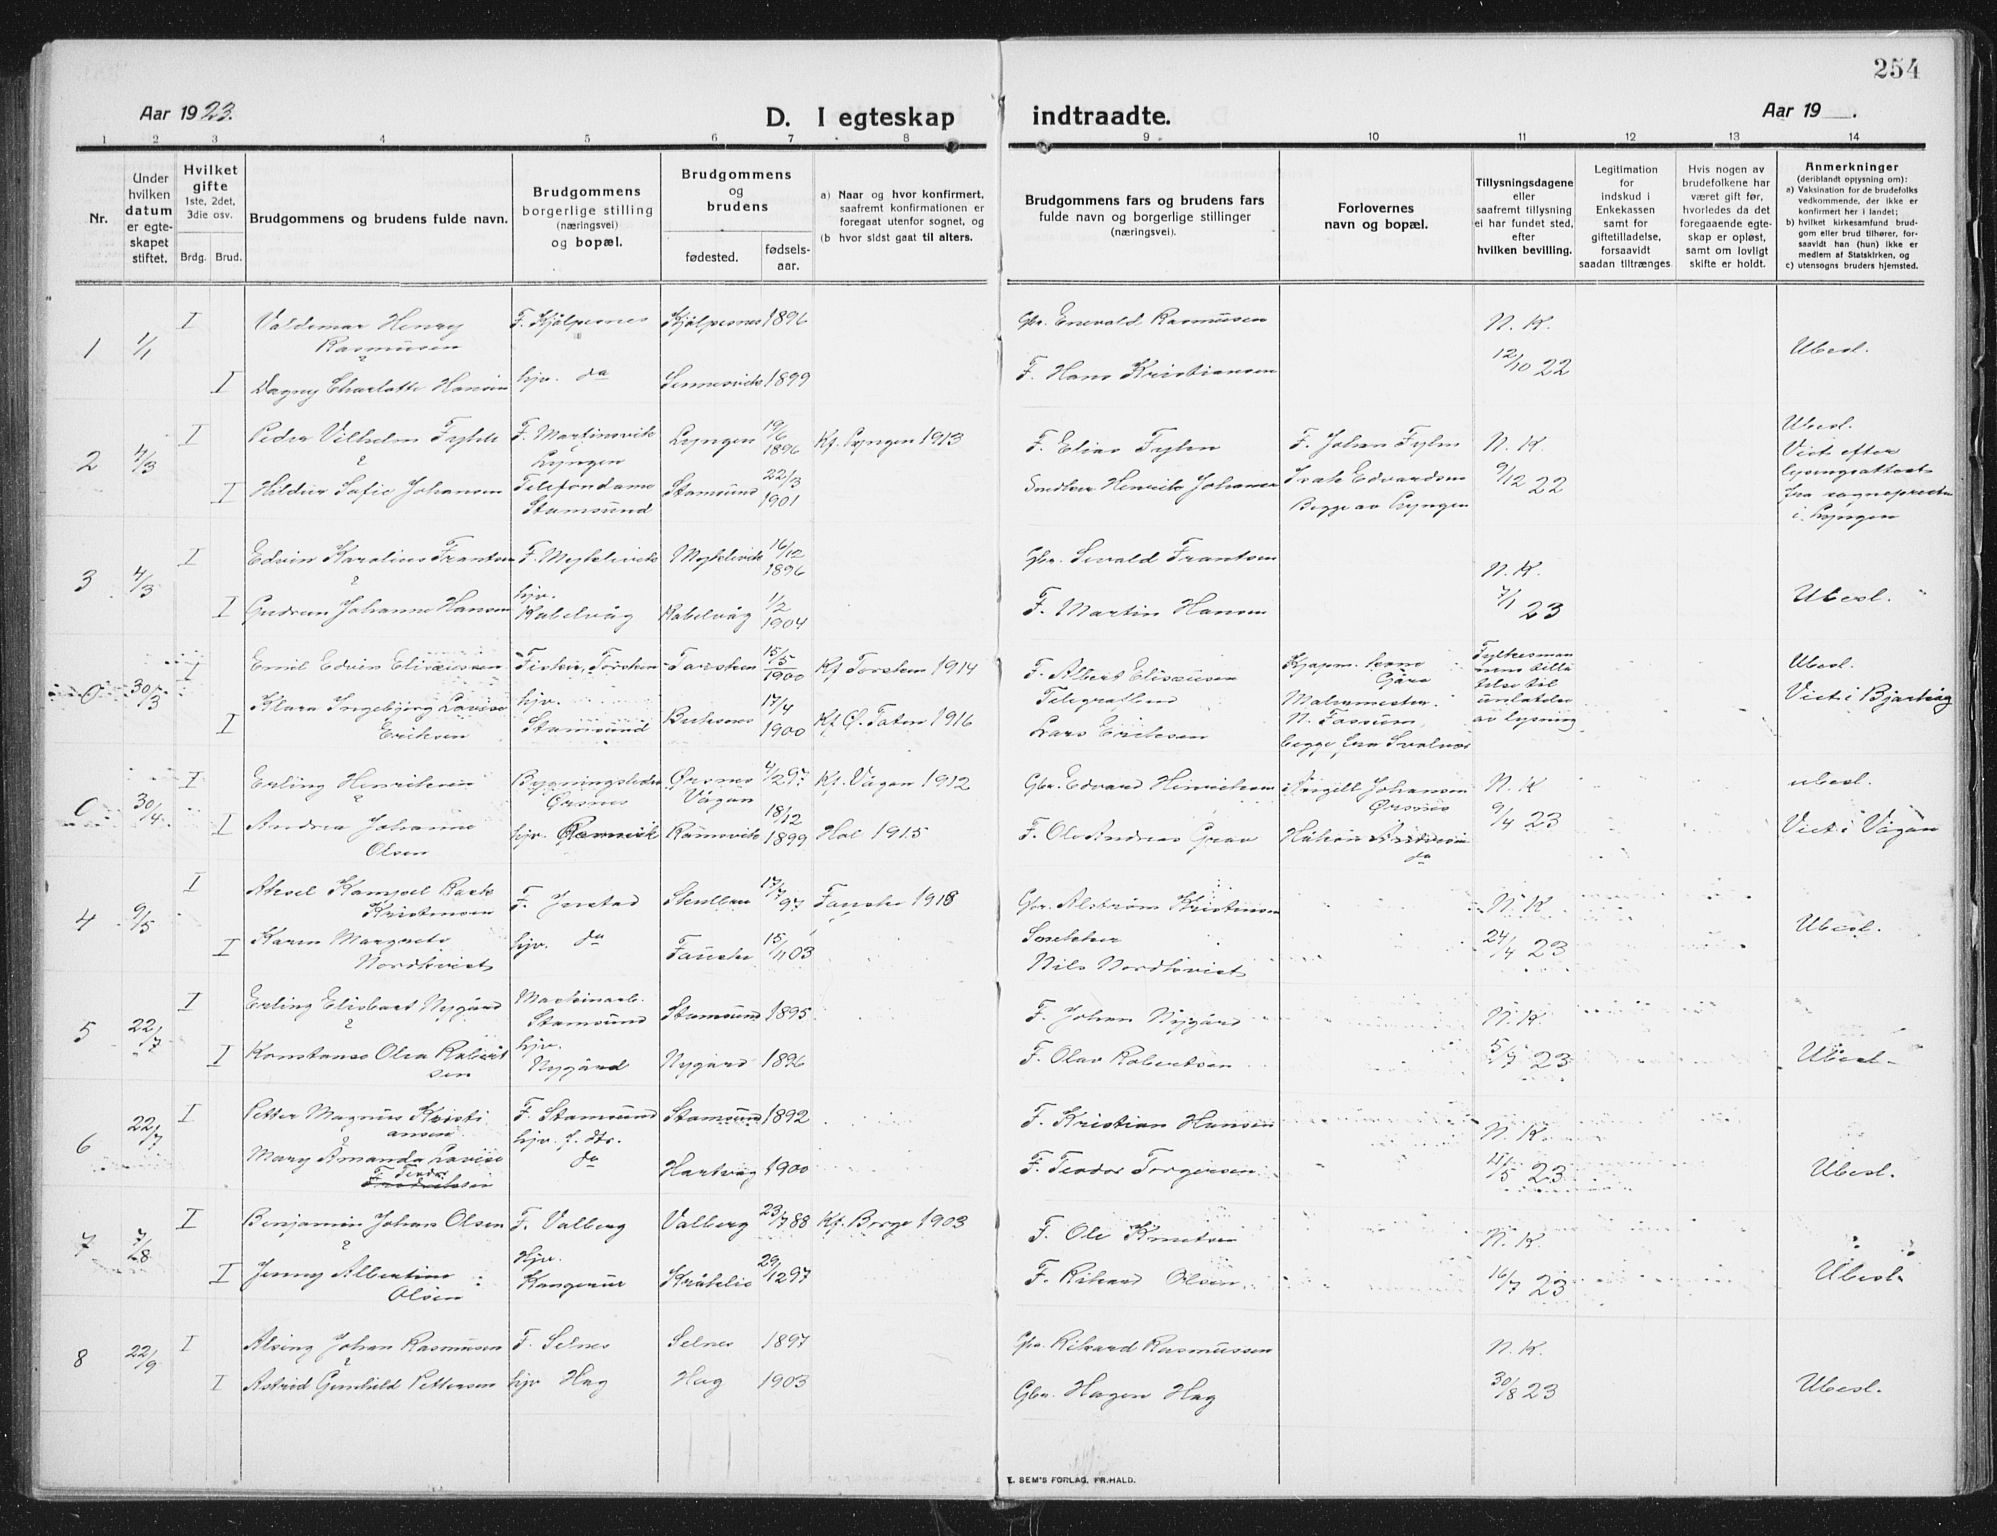 254
Aar 1923.
D. I egteskap indtraadte.
Aar 19 .
1 2 3 4 5 6 7 8 9 10 11 12 13 14
Nr.
Under hvilken datum er egte-skapet stiftet.
Hvilket gifte 1ste, 2det, 3die osv.
Brdg. Brud.
Brudgommens og brudens fulde navn.
Brudgommens borgerlige stilling (næringsvei) og bopæl.
Brudgommens og brudens
fødested.
fødsels-aar.
a) Naar og hvor konfirmert, saafremt konfirmationen er foregaat utenfor sognet, og
(b hvor sidst gaat til alters.
Brudgommens fars og brudens fars fulde navn og borgerlige stillinger (næringsvei).
Forlovernes navn og bopæl.
Tillysningsdagene eller saafremt tillysning ei har fundet sted, efter hvilken bevilling.
Legitimation for indskud i Enkekassen samt for giftetilladelse, forsaavidt saadan tiltrænges
Hvis nogen av brudefolkene har været gift før, hvorledes da det foregaaende egte-skap er opløst, samt om lovligt skifte er holdt.
Anmerkninger (deriblandt oplysning om):
a) Vaksination for de brudefolks vedkommende, der ikke er konfirmert her i landet;
b) hvilket kirkesamfund brud-gom eller brud tilhører, for-saavidt han (hun) ikke er medlem af Statskirken, og
c) utensogns bruders hjemsted.
1 1/1 I Valdemar Henry Rasmussen F. Kjølpesnes Kjølpesnes 1896 Gbr. Enevald Rasmussen N. K.
I Dagny Charlotte Hansen hjv. do Sennesvik 1899 F. Hans Kristiansen 12/10 22 Ubesl.
2 4/3 I Peder Vilhelm Fylen F. Martinsvik Lyngen Lyngen 19/6 1896 Kf. Lyngen 1913 F. Elias Fylen F. Johan Fylen N. K. Ubesl.
I Hildur Sofie Johansen Telefondame Stamsund Stamsund 22/3 1901 Henrik Johansen Edvardsen Begge av Lyngen 9/12 22 Viet efter lysningsattest fra sognepresten i Lyngen
3 4/3 I Edvin Karolius Frantsen F. Myklevik Myklevik 16/12 1896 Gbr. Sevald Frantsen N. K.
I Gudrun Johanne Hansen hjv. Kabelvåg Kabelvåg 1/2 1904 F. Martin Hansen 7/1 23 Ubesl.
0 30/3 I Emil Edvin Eliseussen Fisker, Torsken Torsken 15/5 1900 Kf Torsken 1914 F. Albert Eliseusen Kjøpm. Gjære Fylkesmannens tillatelse til unlatelse av lysning Ubesl.
I Klara Ingebjørg Lovise Eriksen hjv. Stamsund Buksnes 17/4 1900 Kf. Ø. Toten 1916 Lars Eriksen Malermester N. Fossum, begge fra Svolvær Viet i
0 30/4 I Erling Henriksen Ørsnes Ørsnes Vågan 4/2 97 Kf. Vågan 1912 Gbr. Edvard Henriksen Johansen Ørsnes N. K. ubesl.
I Andrea Johanne Olsen hjv. Ramsvik Ramsvik 18/12 1899 Hol 1915 F. Ole Andreas Håkon do 9/4 23 Viet i Vågan
4 9/5 I Kristensen F. Jerstad 17/7 97 Fauske 1918 Gbr. Kristensen N. K.
I Karen Margrete Nordkvist hjv. do Fauske 15/11 03 Nils Nordkvist 24/4 23 Ubesl.
5 22/7 I Erling Elisbart Nygård Maskinarb. Stamsund Stamsund 1895 F. Johan Nygård N. K.
I Konstanse Olea Robertsen hjv. Nygård Nygård 1896 F. Olav Robertsen 5/7 23 Ubesl.
6 22/7 I Petter Magnus Kristiansen F. Stamsund Stamsund 1892 F. Kristian Hansen N. K.
Mary Amanda Lovise F. Teodor Fredriksen hjv. f. dtr. do Hartvåg 1900 F. Teodor Torgersen 4/5 23 Ubesl.
7 7/8 I Benjamin Johans Olsen F. Valberg Valberg 23/7 88 Kf. Borge 1903 F. Ole Knutsen N. K.
I Jenny Albertine Olsen Hjv. Kangerur 29/12 97 F. Rikard Olsen 16/7 23 Ubesl.
8 22/9 I Alsing Johan Rasmussen F. Selnes Selnes 1897 Gbr. Rikard Rasmussen N. K.
I Astrid Gunhild Pettersen hjv Hag Hag 1903 Gbr. Hagen Hag 30/8 23 Ubesl.
E. SEM'S FORLAG, FR.HALD.